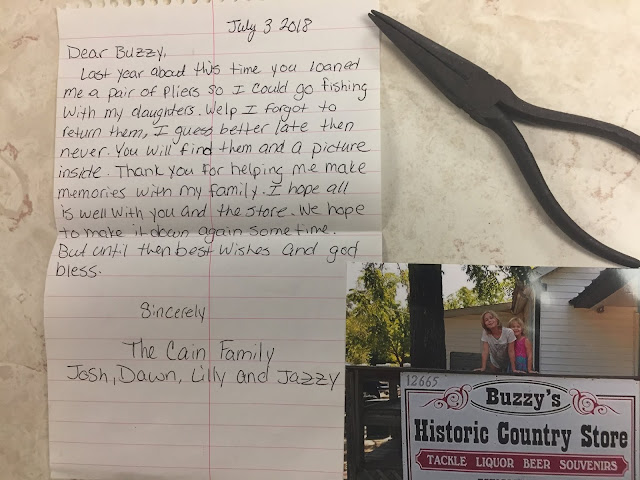 July 3 2018
Dear Buzzy,
Last year about this time you loaned
me a pair of pliers so I could go fishing
with my daughters. Welp I forgot to
return them, I guess better late then
never. You will find them and a picture
inside. Thank you for helping me make
memories with my family. I hope all
is well with you and the store. We hope
to make it down again some time.
But until then best wishes and god
bless.
Sincerely
The Cain Family
Josh, Dawn, Lilly and Jazzy
12665
Buzzy's
Historic Country Store
TACKLE LIQUOR BEER SOUVENIRS